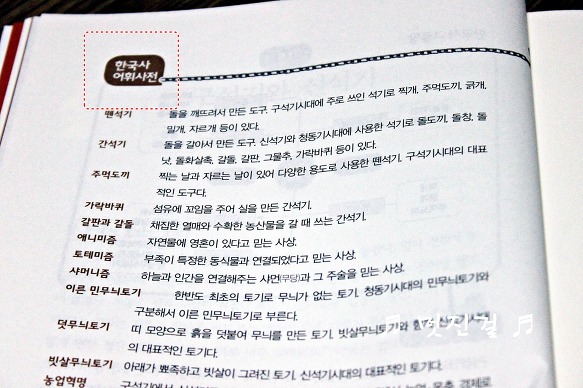 한국사
어휘사전
뗀석기 돌을 깨뜨려서 만든 도구. 구석기시대에 주로 쓰인 석기로 찍개, 주먹도끼, 긁개,
밀개, 자르개 등이 있다.
간석기 돌을 갈아서 만든 도구. 신석기와 청동기시대에 사용한 석기로 돌도끼, 돌창, 돌
낫, 돌화살촉, 갈돌, 갈판, 그물추, 가락바퀴 등이 있다.
주먹도끼 찍는 날과 자르는 날이 있어 다양한 용도로 사용한 뗀석기. 구석기시대의 대표
적인 도구다.
가락바퀴 섬유에 꼬임을 주어 실을 만든 간석기.
갈판과 갈돌 채집한 열매와 수확한 농산물을 갈 때 쓰는 간석기.
애니미즘 자연물에 영혼이 있다고 믿는 사상.
토테미즘 부족이 특정한 동식물과 연결되었다고 믿는 사상.
샤머니즘 하늘과 인간을 연결해주는 샤먼(무당)과 그 주술을 믿는 사상.
이른 민무늬토기 한반도 최초의 토기로 무늬가 없는 토기. 청동기시대의 민무늬토기와
구분해서 이른 민무늬토기로 부른다.
덧무늬토기 띠 모양으로 흙을 덧붙여 무늬를 만든 토기. 빗살무늬토기와 함께 신석기시
의 대표적인 토기다.
빗살무늬토기 아래가 뾰족하고 빗살이 그려진 토기. 신석기시대의 대표적인 토기다.
농업혁명 구석기에서